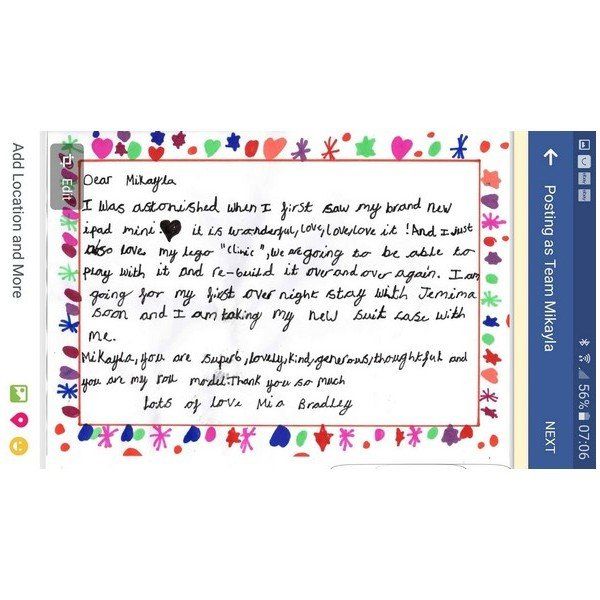 Dear Mikayla
I was astonished when I first saw my brand new
ipad mini. it is wonderful, love, lovelove it! And I just
also love my lego "Clinic", we are going to be able to
play with it and re-build it over and over again. I am
going for my first over night stay with Jemima
soon and I am taking my new suit case with
me.
Mikayla, you are superb, lovely, kind, generous, thoughtful and
you are my roll model. Thank you so much
Lots of love Mia Bradley
Edit
Add Location and More
Posting as Team Mikayla
NEXT
56% 07:06